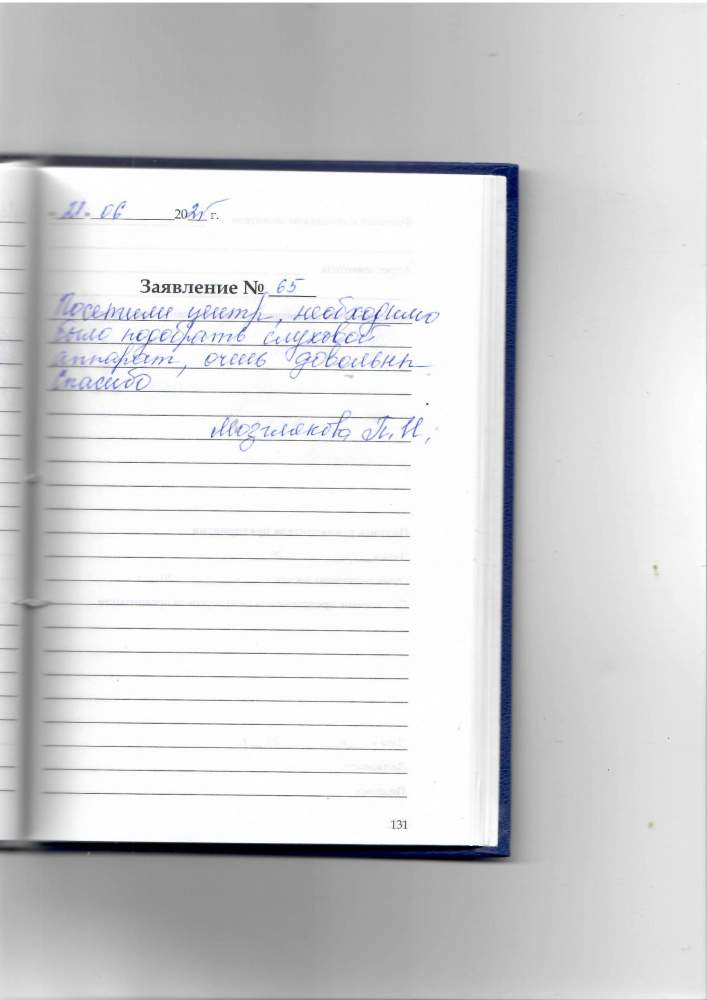 28. 06 2025 г.
Заявление № 65
Посетили центр, необходимо
было подобрать слуховой
аппарат, очень довольны
Спасибо
Мозглякова П.Н.
131